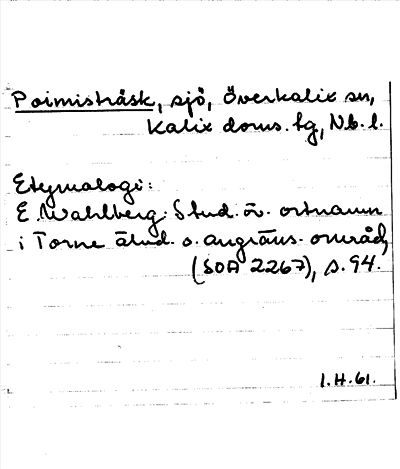 Poimisträsk, sjö, Överkalix sn,
Kalix doms. tg, Nb. l.
Etymologi:
E. Wahlberg: Stud. öv. ortnamn
i Torne älvd. o. angräns. områd,
(SOA 2267), s. 94.
I.H. 61.